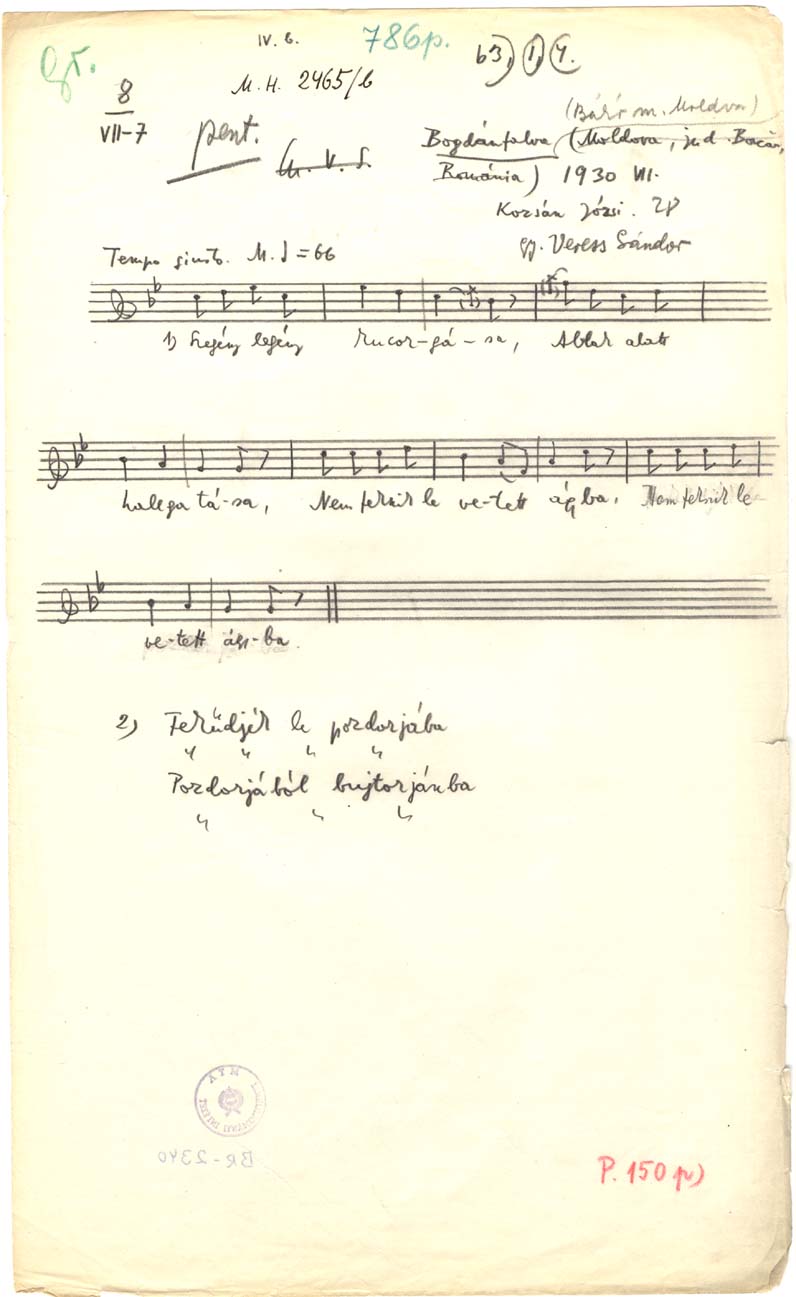 IV. b. 786p. 63, 1, 4.
M. H. 2465/b
8
VII-7 pent.
(Bákó m. Moldva)
Bogdánfalva (Moldova, jud. Bacău,
România) 1930 VII.
Kozsán Józsi. 28
gy. Veress Sándor
Tempo giusto. M. ♩=66
1) Szegény legény kucor-gá-sa, Ablak alatt
halegatá-sa, Nem fekszik le ve-tett ágyba, Nem fekszik le
ve-tett ágy-ba.
2) Feküdjék le pozdorjába
" " " "
Pozdorjából bujtorjánba
" " "
ATM
BR-2340
P. 150 p)